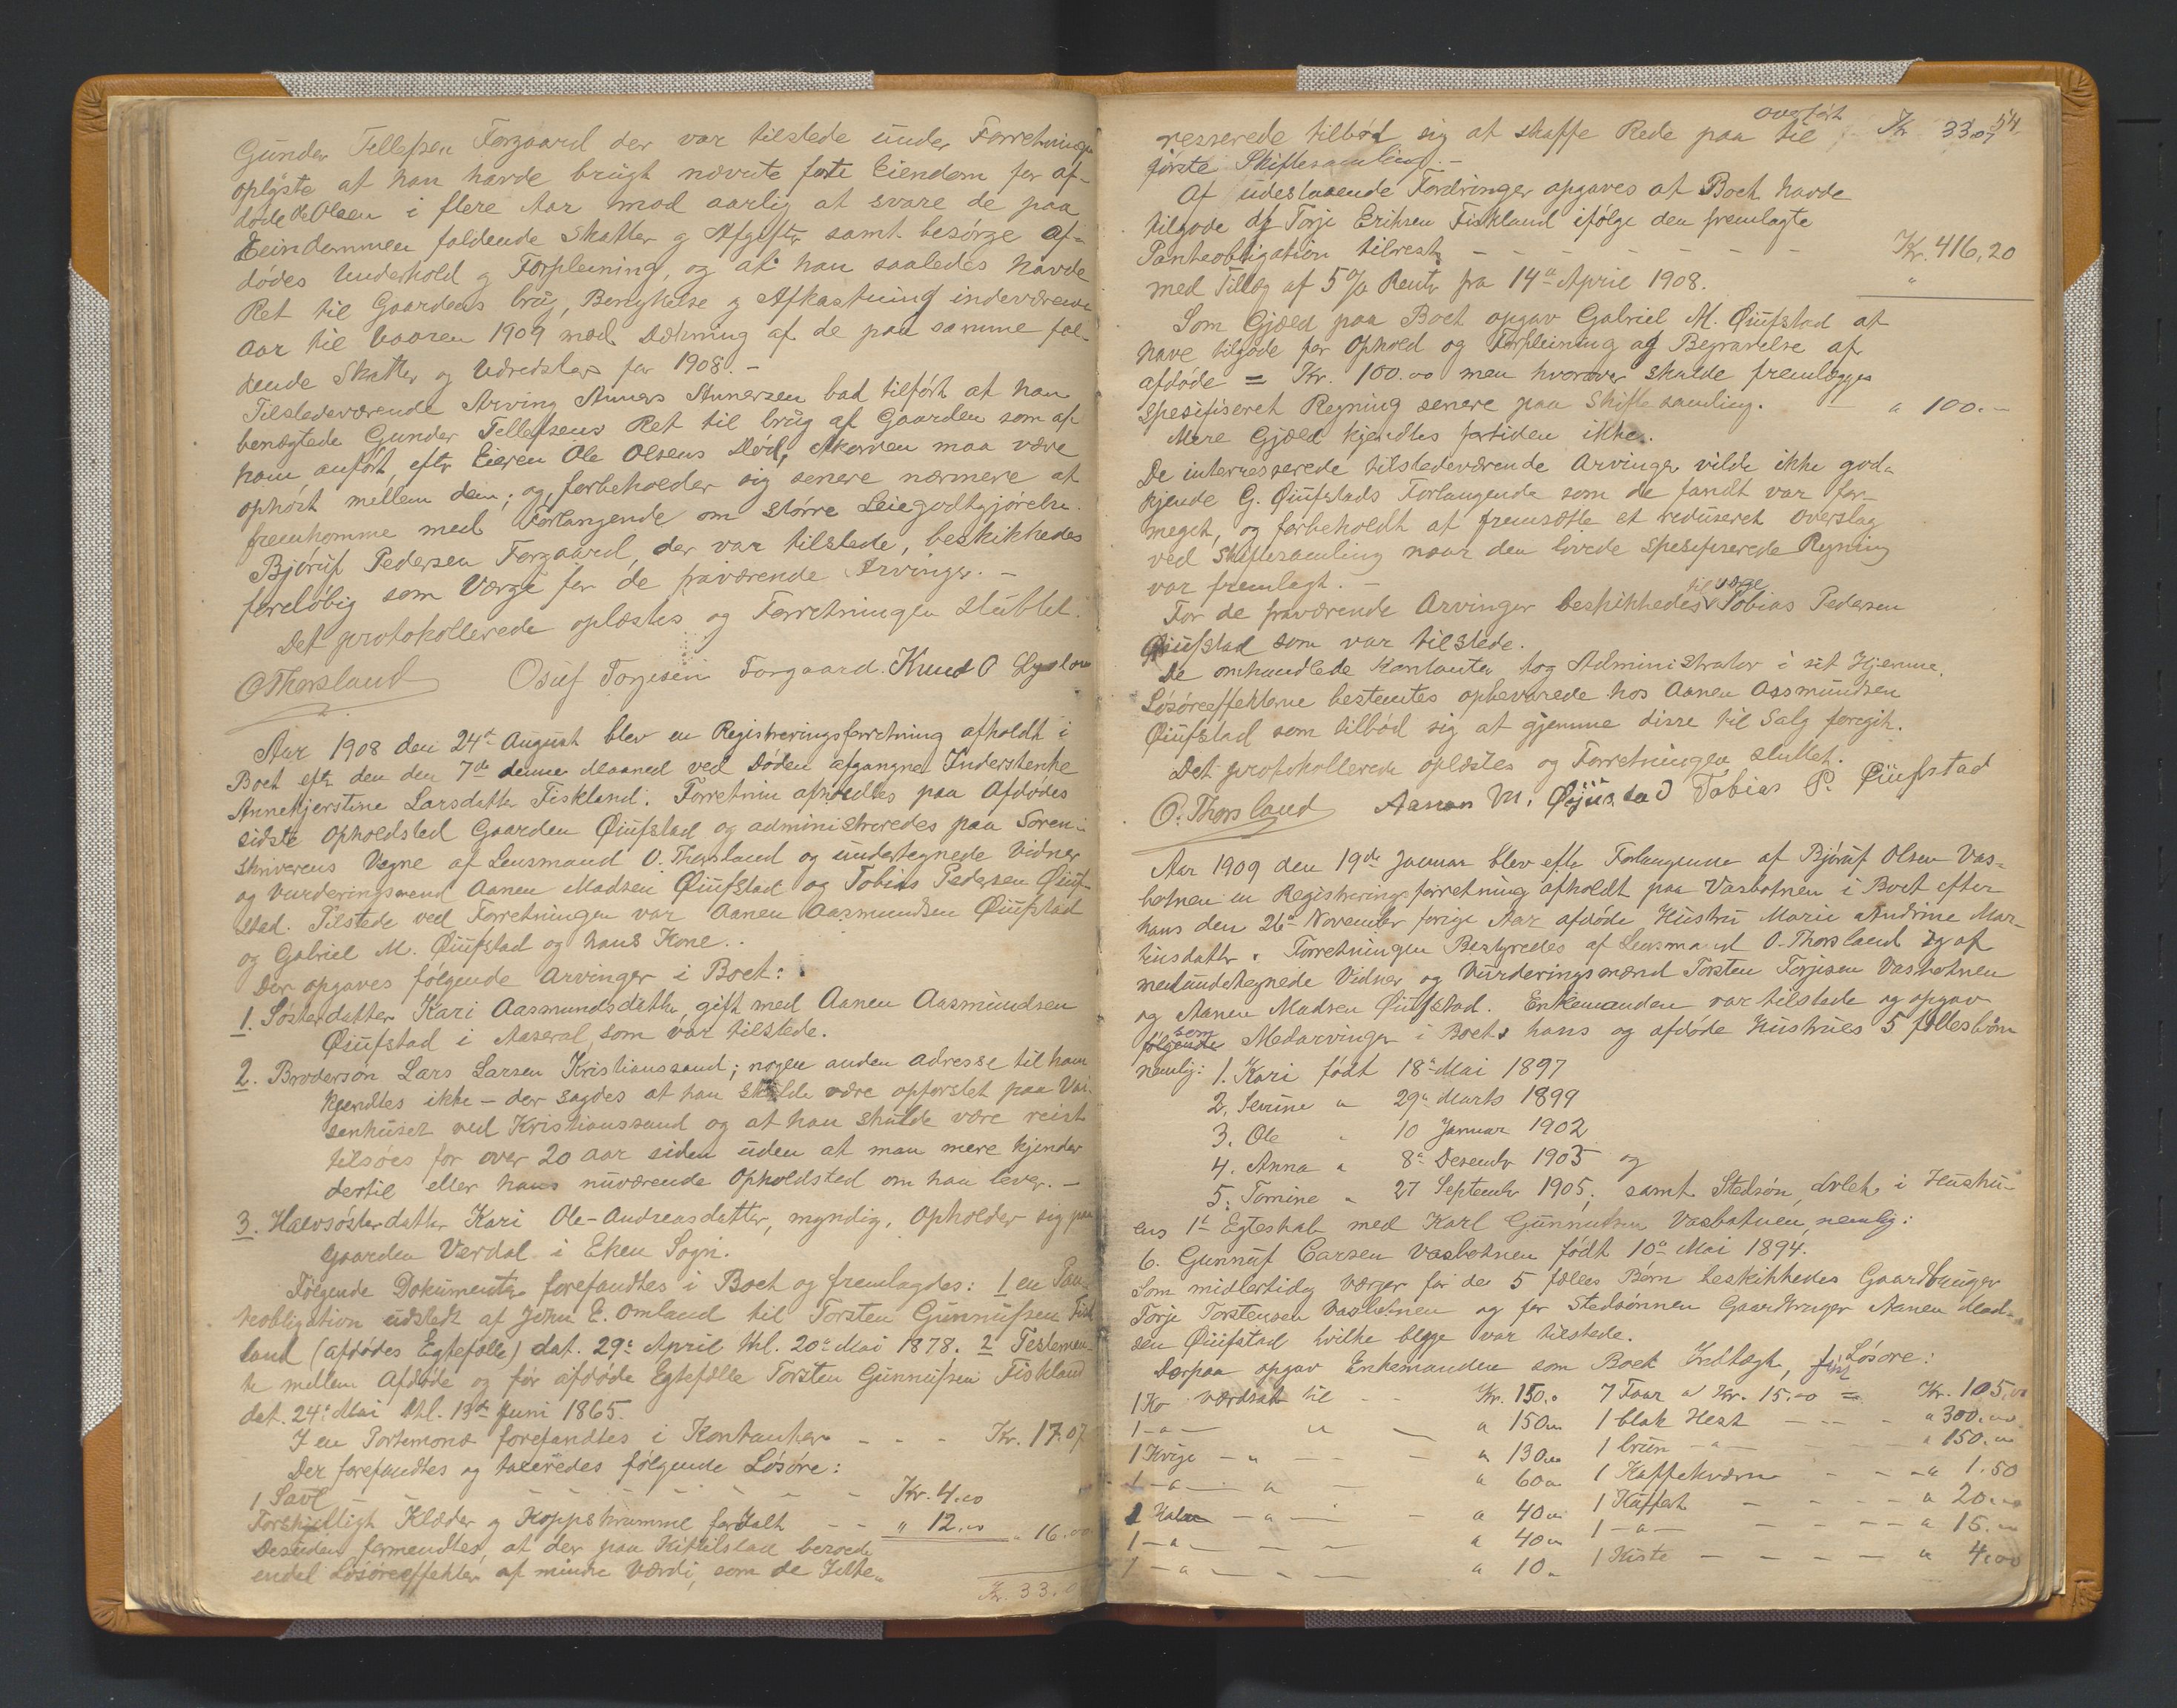 Gunder Tellefsen Forgaard der var tilstede under Forretningen
oplyste at han havde brugt nævnte faste Eiendom for af-
døde Ole Olsen i flere Aar mod aarlig at svare de paa
Eiendommen faldende Skatter og Afgifter samt besørge af-
dødes Underhold og Forpleining, og at han saaledes havde
Ret til Gaardens brug, Benyttelse og Afkastning indeværende
Aar til Vaaren 1909 med Dækning af de paa samme fal-
dende Skatter og Udredsler for 1908. -
Tilstedeværende Arving Anners Annersen bad tilført at han
benægtede Gunder Tellefsens Ret til brug af Gaarden som af
ham anført, efter Eieren Ole Olsens Død, Akorden maa være
ophørt mellem dem; og forbeholder sig senere nærmere at
fremkomme med Forlangende om større Leiegodtgjørelse.
Bjøruf Pedersen Forgaard, der var tilstede, beskikkedes
foreløbig som Værge for de fraværende Arvinger. -
Det protokollerede oplæstes og Forretningen sluttet.
O Thorsland Osuf Torjesen Forgaard. Knud O
Aar 1908 den 24de August blev en Registreringsforretning afholdt i
Boet efter den den 7de denne Maaned ved Døden afgangne Inderstenke
Annekjerstine Larsdatter Fiskland. Forretnin afholdtes paa Afdødes
sidste Opholdsted Gaarden Øiufstad og administreredes paa Soren-
skriverens Vegne af Lensmand O. Thorsland og undertegnede Vidner
og Vurderingsmend Aanen Madsen Øiufstad og Tobias Pedersen Øiuf-
stad. Tilstede ved Forretningen var Aanen Aasmundsen Øiufstad
og Gabriel M. Øiufstad og hans Kone..
Der opgaves følgende Arvinger i Boet:
1. Søsterdatter Kari Aasmundsdatter, gift med Aanen Aasmundsen
Øiufstad i Aaseral, som var tilstede.
2. Brodersøn Lars Larsen Kristianssand; nogen anden Adresse til ham
kjendtes ikke - der sagdes at han skulde være opforstet paa Vai-
senhuset ved Kristianssand og at han skulde være reist
tilsøes for over 20 Aar siden uden at man mere kjender
dertil eller hans nuværende Opholdsted om han lever. -
3. Halvsøsterdatter Kari Ole-Andreasdatter, myndig, Opholder sig paa
Gaarden Verdal i Eken Sogn.
Følgende Dokumenter forefandtes i Boet og fremlagdes: 1 en Pan-
teobligation udstedt af John E. Omland til Torsten Gunnufsen Fisk
land (afdødes Egtefælle) dat. 29de April thl. 20de Mai 1878. 2 Testemen-
te mellem Afdøde og før afdøde Egtefælle Torsten Gunnufsen Fiskland
dat. 24de Mai thl. 13de Juni 1865.
I en Portemonæ forefandtes i Kontanter - - - Kr. 17.07
Der forefandtes og taxeredes følgende Løsøre:
1 Saul - - - - - - Kr. 4.00
Forskjelligt Klæder og Koppskrumme forIalt - - " 12.00 " 16.00
Desuden formendtes, at der paa Kittilsland beroede
endel Løsøreeffekter af mindre Værdi, som de Inte-
Kr. 33.0
54
overført
resserede tilbød sig at skaffe Rede paa til Kr 33.07
første Skiftesamling. -
Af udestaaende Fordringer opgaves at Boet havde
tilgode af Torje Eriksen Fiskland ifølge den fremlagte
Panteobligation tilrest - - - - - - - Kr. 416,20
med Tillæg af 5% Rente fra 14de April 1908. "
Som Gjæld paa Boet opgav Gabriel M. Øiufstad at
have tilgode for Ophold og Forpleining og Begravelse af
afdøde = Kr. 100.00 men hvorover skulde fremlægges
spesifiseret Regning senere paa Skiftesamling. - " 100.-
Mere Gjæld kjendtes fortiden ikke.
De interresserede tilstedeværende Arvinger vilde ikke god-
kjende G. Øiufstads Forlangende som de fandt var for-
meget, og forbeholdt at fremsætte et reduseret Overslag
ved Skiftesamling naar den lovede spesifiserede Regning
var fremlagt. -
til værge
For de fraværende Arvinger beskikkedes Tobias Pedersen
Øiufstad som var tilstede.
De omhandlede Kontanter tog Administrator i sit Hjemme.
Løsøreeffekterne bestemtes opbevarede hos Aanen Assmundsen
Øiufstad som tilbød sig at gjemme disse til Salg foregik.
Det protokollerede oplæstes og Forretningen sluttet.
O. Thorsland Aanon M. Øyustad Tobias P. Øiufstad
Aar 1909 den 19de Januar blev efter Forlangende af Bjøruf Olsen Vas-
botnen en Registreringsforretning afholdt paa Vasbotnen i Boet efter
hans den 26de November forige Aar afdøde Hustru Marie Andrine Mar-
tinsdatter. Forretningen Bestyredes af Lensmand O. Thorsland og af
medundertegnede Vidner og Vurderingsmænd Torsten Torjesen Vasbotnen
og Aanen Madsen Øiufstad. Enkemanden var tilstede og opgav
som
følgende Medarvinger i Boet: hans og afdøde Hustrues 5 fællesbørn
nemlig: 1. Kari født 18de Mai 1897
2. Sevine " 29de Marts 1899
3. Ole " 10 Januar 1902
4. Anna " 8de Desember 1903 og
5. Tomine " 27 September 1905; samt Stedsøn, avlet i Hustru-
ens 1ste Egteskab med Karl Gunnufsen Vasbotnen, nemlig:
6. Gunnuf Carsen Vasbotnen født 10de Mai 1894.
Som midlertidig Værger for de 5 fælles Børn beskikkedes Gaardbruger
Torje Torstensen Vasbotnen og for Stedsønnen Gaardbruger Aanen Mad-
sen Øiufstad hvilke begge var tilstede.
Derpaa opgav Enkemanden som Boets Indtægt, Løsøre:
1 Ko værdsat til - - Kr. 150.0 7 Faar a Kr. 15.00 = Kr. 105.00
1 - " - " - " 150.00 1 blak Hest - - - " 300.00
1 Kvige - " - - - " 130.00 1 brun - " - " 150.00
1 - " - " - " 60.00 1 Kaffekværn - - " 1.50
1 Kalv - " - - " 40.00 1 Kuffert - - - " 20.00
1 - " - - - " 40.00 1 - " - - - - " 15.00
1 - " - - - " 10.- 1 Kiste - - - - " 4.00